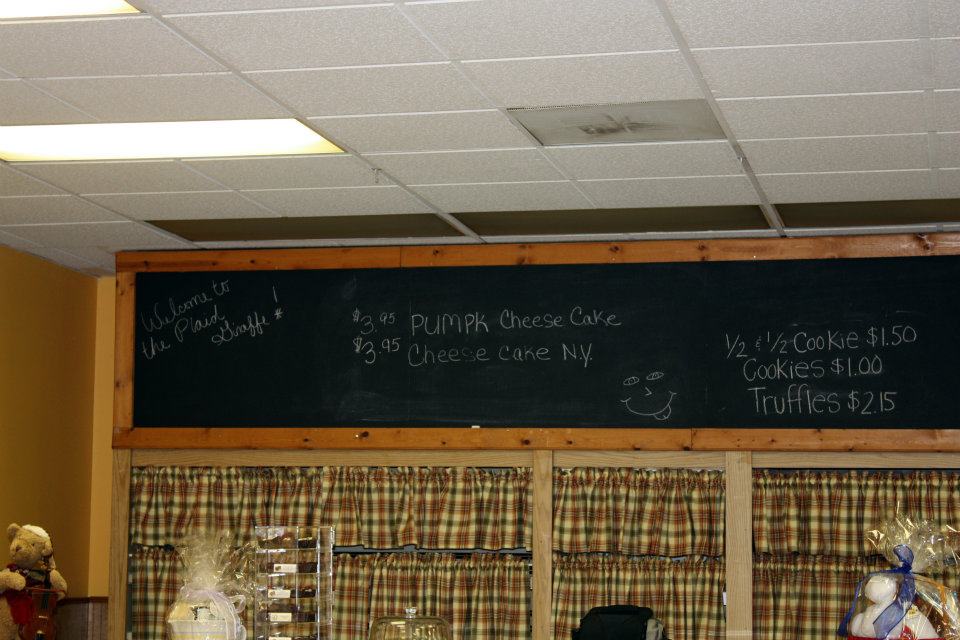 Welcome to
the Plaid
Giraffe!
$3.95 PUMPK Cheese Cake
$3.95 Cheese cake N.Y.
1/2 & 1/2 Cookie $1.50
Cookies $1.00
Truffles $2.15